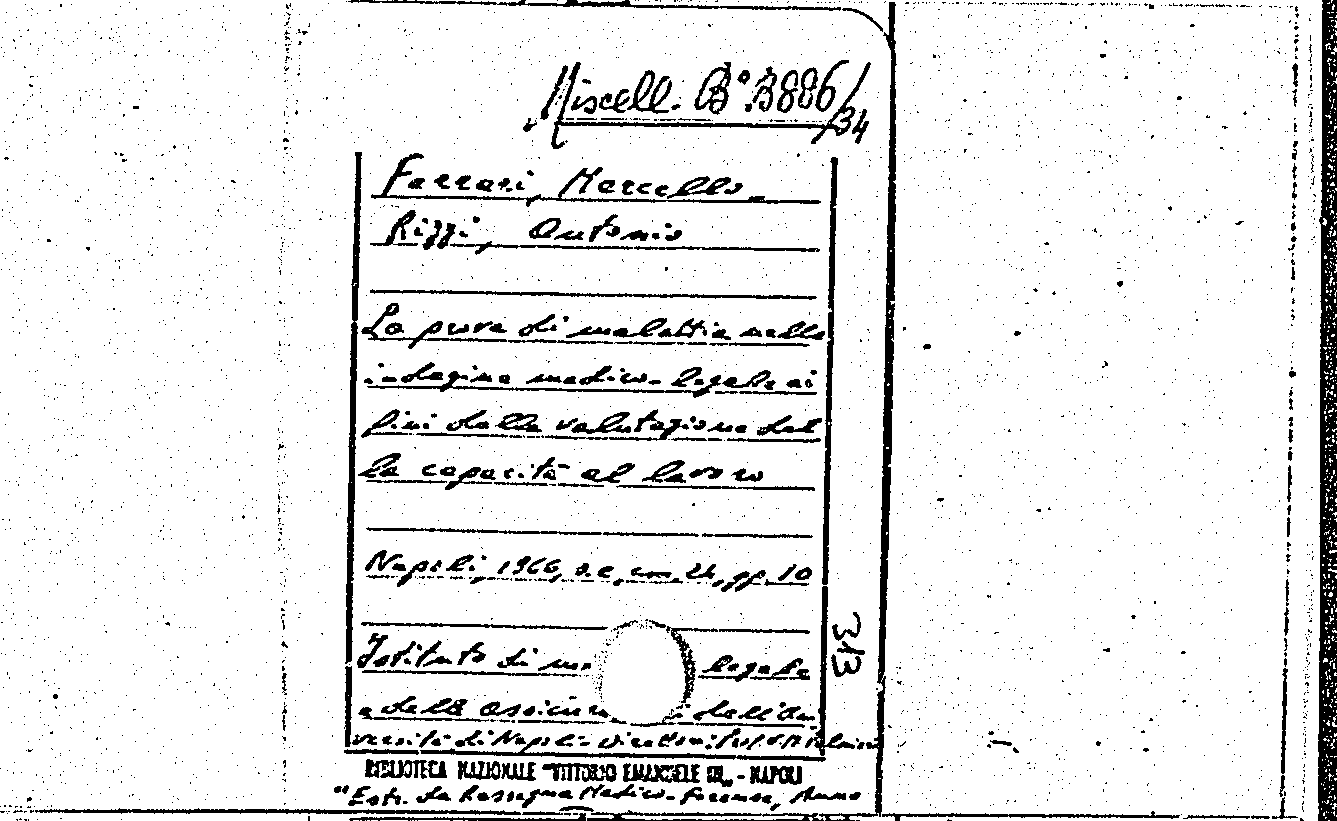 Miscell. B° B886/34
Ferrari, Marcello
Rizzi, Antonio
La prova di malattia nelle
indagine medico-legale ai
fini della valutazione del
la capacità al lavoro
Napoli, 1966, s.e, cm. 24, pp. 10
313
Istituto di me legale
e delle assicura i dell'Uni
versità di Napoli - Direttore: Prof.
BIBLIOTECA NAZIONALE "VITTORIO EMANUELE III" - NAPOLI
"Estr. da Rassegna Medico-forense, Anno